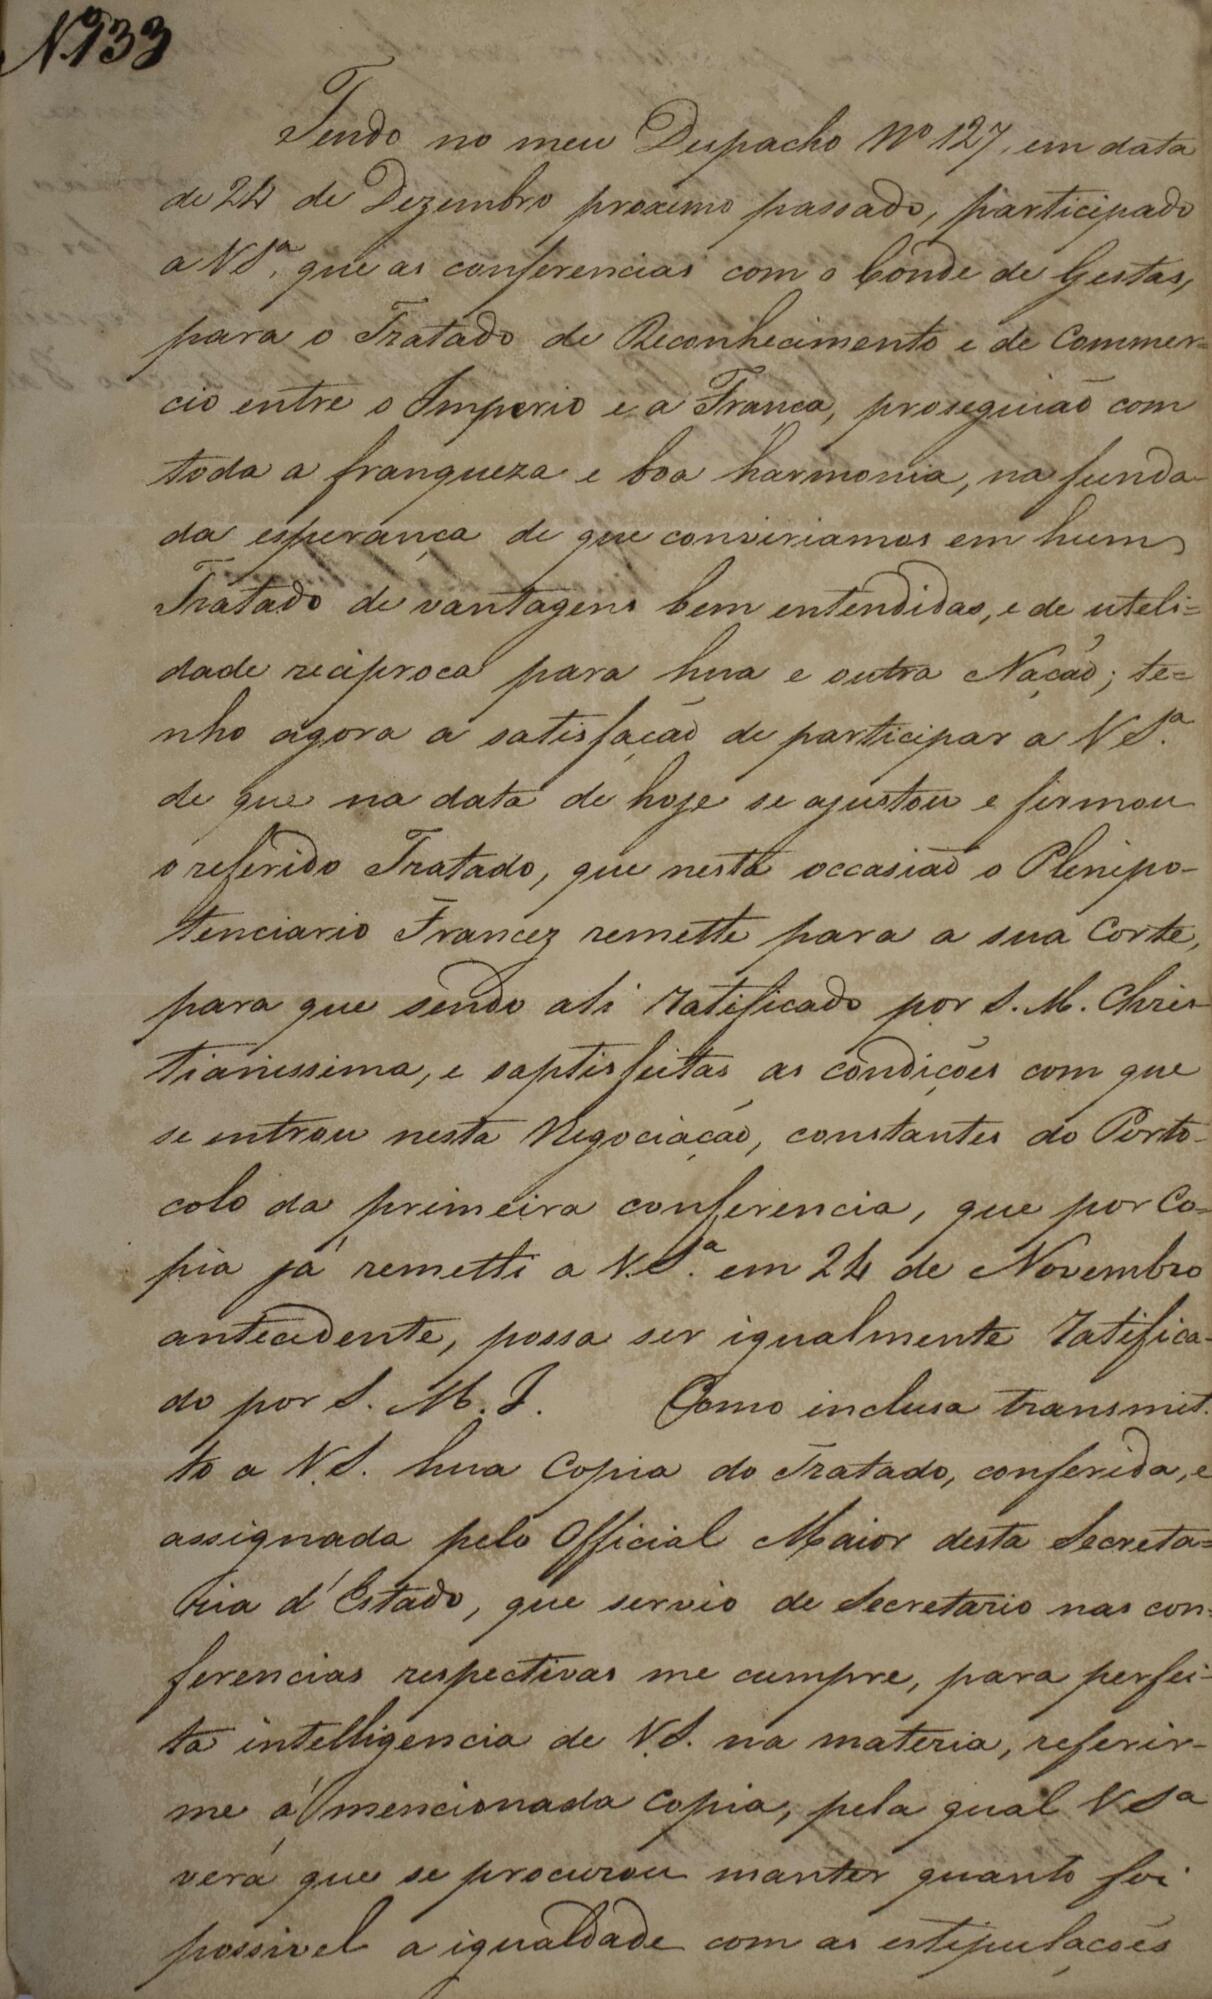 N.º 133
Tendo no meu Despacho Nº 127, em data
de 24 de Dezembro proximo passado, participado
a V Sª. que as conferencias com o Conde de Gestas,
para o Tratado de Reconhecimento e de Commer-
cio entre o Imperio e a França, proseguião com
toda a franqueza e boa harmonia, na funda-
da esperança de que conviriamos em hum
Tratado de vantagens bem entendidas, e de utili=
dade reciproca para hua e outra Nação; te=
nho agora a satisfação de participar a V Sª.
de que na data de hoje se ajustou e firmou
o referido Tratado, que nesta occasião o Plenipo-
tenciario Francez remette para a sua Corte,
para que sendo ali ratificado por S. M. Chris-
tianissima, e saptisfeitas as condições com que
se entrou nesta Negociação, constantes do Porto-
colo da primeira conferencia, que por Co-
pia já remetti a V. Sª. em 24 de Novembro
antecedente, possa ser igualmente ratifica-
do por S. M. I. Como inclusa transmit-
to a V. S. hua Copia do Tratado, conferida, e
assignada pelo Official Maior desta Secreta=
ria d'Estado, que servio de Secretario nas con-
ferencias respectivas me cumpre, para perfei-
ta intelligencia de V. S. na materia, referir-
me á mencionada Copia, pela qual V Sª
verá que se procurou manter quanto foi
possivel a igualdade com as estipulações